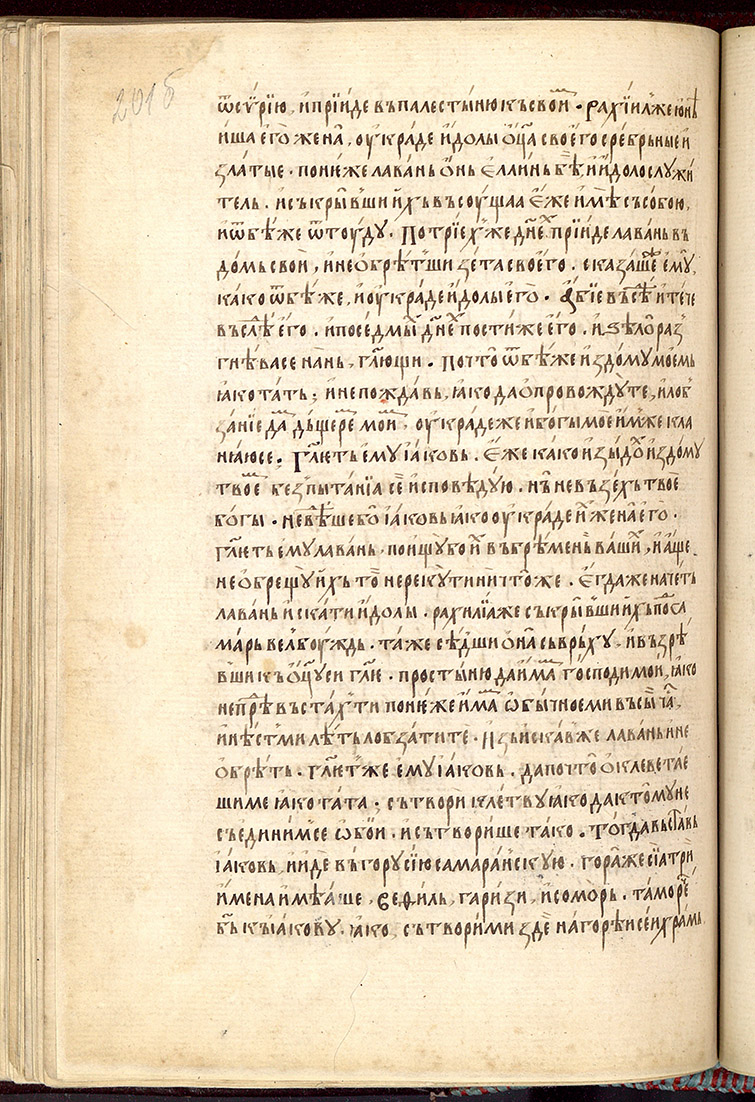 201б
ѿсѵ́рїю, и҆прїи́де въпалесты́ню къ свои̑ⷨ · рахїи́лⷤже ю҆нѣ
и҆ша е҆го̀ жена̀, о҆у҆кра́де и҆́долы ѻ҆ц҃а свое́го сре́брьные и҆
зла́тые · поне́же лава́нь ѻ҆́нь є҆́ллинь бѣ̀ и҆ и҆́долослужи́
тель · и҆съкры́вши и҆́хъ въсоу́щаа є҆́же и҆мѣ̀ съсо́бою,
и҆ѿбѣ́же ѿтоу́ду · По трїе́хⷤже дн҃еⷯ прїи́де лава́нь въ
до́мь сво́й, и҆не ѻ҆брѣ́тши зе́та своего̀ · сказа́шеⷤ е҆мꙋ̀,
ка́ко ѿбѣ́же, и҆ о҆у҆кра́де и҆́долы е҆го̀ · а҆́бїе въслѣ́ⷣ и҆ те́че
въслѣ́ⷣ е҆го̀ · и҆по се́дмыⷯ дн҃еⷯ пости́же е҆го̀ · и҆ ѕѣлѡ̀ раз̾
гнѣ́ва се на́нь, гл҃ющи · Почто̀ ѿбѣ́же и҆з до́му мое́мь
ꙗ҆́ко та́ть ; и҆не пожда́вь, ꙗ҆́ко да ѻ҆провожду́ те, и҆ лоб̾
за́нїе да́ⷨ дь́щереⷨ мои̑ⷨ · о҆у҆кра́де же и҆ бо́гы мое́ и҆́мⷤже кла
нꙗ́ю се · Гл҃ѥть е҆му̀ і҆а́ковь · Е҆́же ка́ко и҆зы́дохⷪ и҆з до́му
твоеⷢ҇ без̾пыта́нїа сѐ и҆сповѣ́дую · нъ̀ не въ зе́хь твое́
бо́гы · не вѣ́ⷣше бо̀ і҆а́ковь ꙗ҆́ко о҆у҆кра́де иⷯ жена̀ е҆го̀ ·
гл҃ѥть е҆му̀ лава́нь · поищꙋ̀ бо иⷯ въ брѣ́менѣⷯ ва́шиⷯ, и҆ а҆́ще
не ѻ҆бре́щꙋ и҆́хъ то̀ не рекꙋ̀ ти ничто́же · Е҆гда́ же на́четь
лава́нь и҆ска́ти и҆́долы · рахилі́а же съкры́вши и҆́хъ поⷣ са
ма́рь велбоу́ждь · та́же сѣ́дши ѻ҆на̀ свы́рхꙋ · и҆ възрѣ́
вши къ ѻ҆ц҃ꙋ си гл҃ѥ · просты́ню да́й ма́ⷨ го́споди мо́й, ꙗ҆́ко
не прѣⷣвъста́хⷮ ти поне́же и҆́маⷨ ѻ҆бы́чное ми въ съⷩ҇ ча́ⷭ,
и҆ нѣ́сть ми лѣ́ть лобза́ти те̑ · И҆зы́искав̾же лава́нь и не
ѻ҆брѣ́ть · гл҃ѥтⷤже е҆му̀ і҆а́ковь · да почто̀ ѻ҆клевета́е
ши ме ꙗ҆́ко та́та · сътвори̑ кле́твꙋ ꙗ҆́ко да кто́мꙋ не
съедини́мсе ѻ҆бо́и · и҆ сътвори́ше та́ко · Тогда̀ въста́вь
і҆а́ковь, и҆и́де въ го́рꙋ сїю самара́йскꙋю · гора́ же сїа̀ три̑
и҆мена̀ и҆мѣ́аше, веѳи́ль, гари́зи, и҆ сомо́рь · та́мо реⷱ҇
бг҃ь къ і҆а́ковꙋ · ꙗ҆́ко, сътвори́ ми здѐ на горѣ́и се́и хра́мь